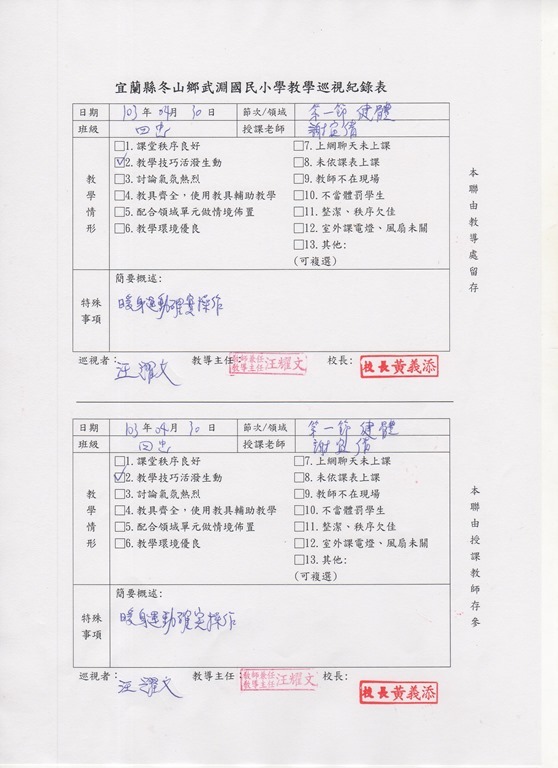 宜蘭縣冬山鄉武淵國民小學教學巡視紀錄表
日期 103 年 04 月 30 日 節次/領域 第一節 健體
班級 四忠 授課老師 謝宜倩
教學情形
□1. 課堂秩序良好 □7. 上網聊天未上課
☑2. 教學技巧活潑生動 □8. 未依課表上課
□3. 討論氣氛熱烈 □9. 教師不在現場
□4. 教具齊全，使用教具輔助教學 □10. 不當體罰學生
□5. 配合領域單元做情境佈置 □11. 整潔、秩序欠佳
□6. 教學環境優良 □12. 室外課電燈、風扇未關
□13. 其他:
(可複選)
特殊事項
簡要概述:
暖身運動確實操作
巡視者: 汪耀文 教導主任: 教師兼任教導主任 汪耀文 校長: 校長黃義添
本聯由教導處留存
日期 103 年 04 月 30 日 節次/領域 第一節 健體
班級 四忠 授課老師 謝宜倩
教學情形
□1. 課堂秩序良好 □7. 上網聊天未上課
☑2. 教學技巧活潑生動 □8. 未依課表上課
□3. 討論氣氛熱烈 □9. 教師不在現場
□4. 教具齊全，使用教具輔助教學 □10. 不當體罰學生
□5. 配合領域單元做情境佈置 □11. 整潔、秩序欠佳
□6. 教學環境優良 □12. 室外課電燈、風扇未關
□13. 其他:
(可複選)
特殊事項
簡要概述:
暖身運動確實操作
巡視者: 汪耀文 教導主任: 教師兼任教導主任 汪耀文 校長: 校長黃義添
本聯由授課教師存參